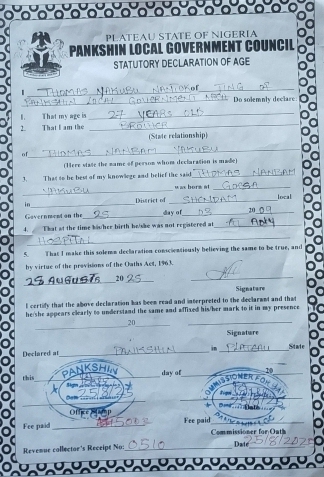 PLATEAU STATE OF NIGERIA
PANKSHIN LOCAL GOVERNMENT COUNCIL
STATUTORY DECLARATION OF AGE
I THOMAS YAKUBU of TING OF
PANKSHIN LOCAL GOVERNMENT AREA Do solemnly declare:
1. That my age is 27 YEARS OLD
2. That I am the BROTHER
(State relationship)
of THOMAS NANBAM YAKUBU
(Here state the name of person whom declaration is made)
3. That to be best of my knowlege and belief the said THOMAS NANBAM
YAKUBU was born at GOESA
in District of SHENDAM local
Government on the 25 day of 09 20 09
4. That at the time his/her birth he/she was not registered at ANY
HOSPITAL
5. That I make this solemn declaration conscientiously believing the same to be true, and
by virtue of the provisions of the Oaths Act, 1963.
25 AUGUSTS 20 25
Signature
I certify that the above declaration has been read and interpreted to the declarant and that
he/she appears clearly to understand the same and affixed his/her mark to it in my presence
20
Signature
Declared at PANKSHIN in PLATEAU State
this day of 20
PANKSHIN
COMMISSIONER FOR OATH
Sign
Date
Office Stamp
Fee paid 500 Fee paid
Commissioner for Oath
Revenue collector's Receipt No: 0510 Date 25/8/2025